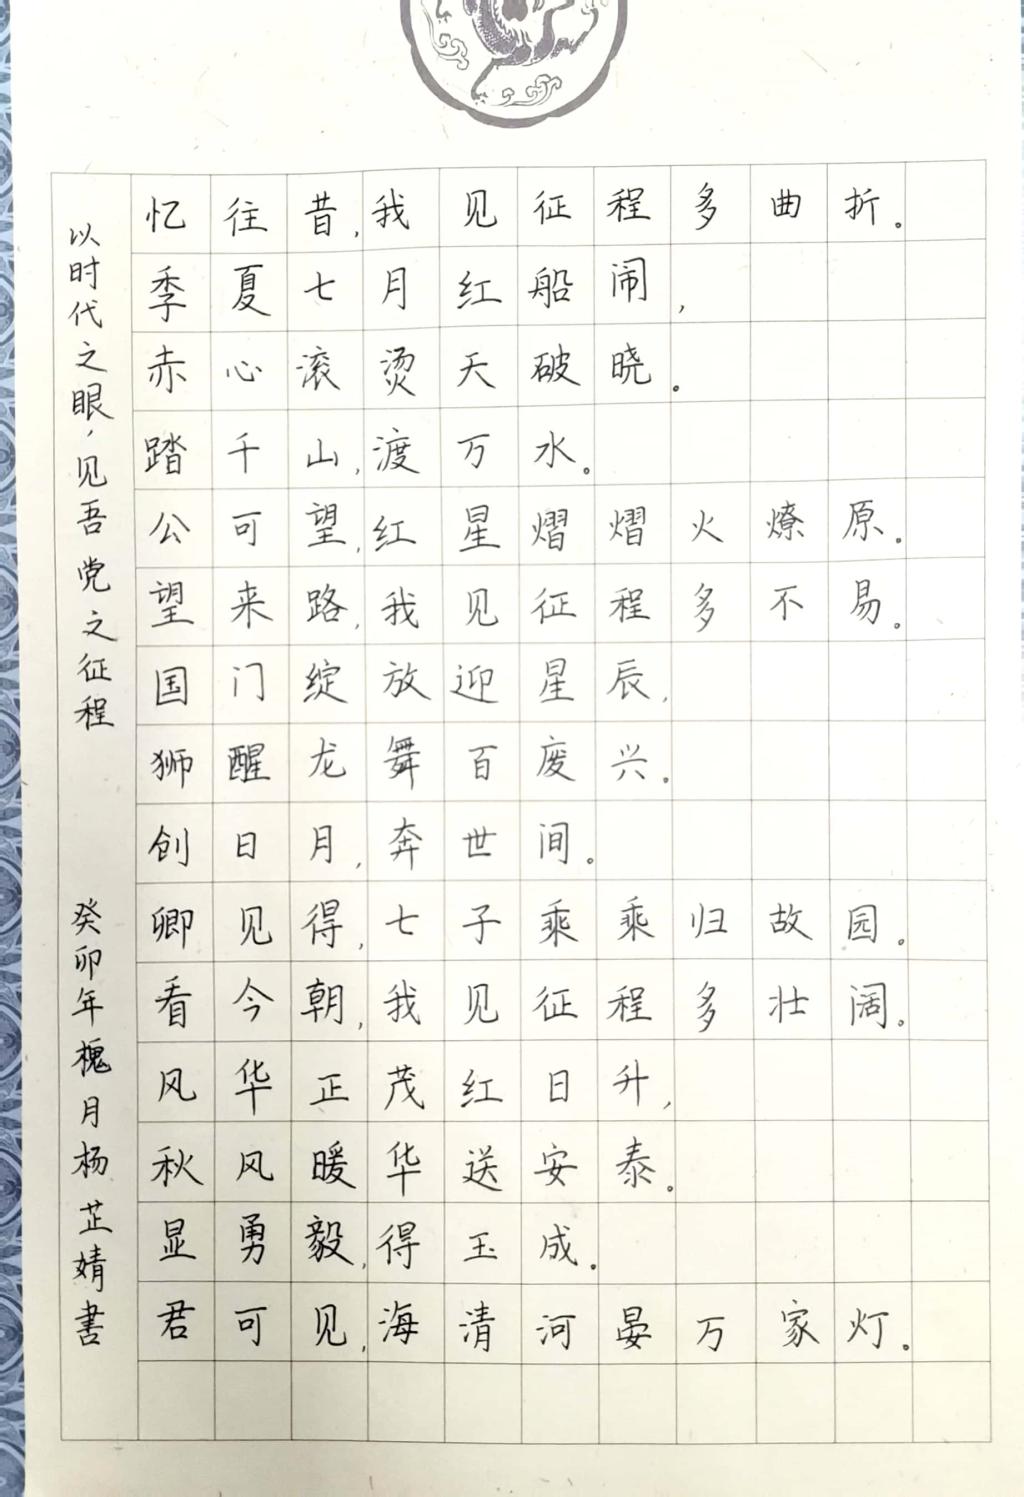 以时代之眼，见吾党之征程
忆往昔，我见征程多曲折。
季夏七月红船闹，
赤心滚烫天破晓。
踏千山，渡万水。
公可望，红星熠熠火燎原。
望来路，我见征程多不易。
国门绽放迎星辰，
狮醒龙舞百废兴。
创日月，奔世间。
卿见得，七子乘乘归故园。
看今朝，我见征程多壮阔。
风华正茂红日升，
秋风暖华送安泰。
显勇毅，得玉成。
君可见，海清河晏万家灯。
癸卯年槐月杨芷婧書